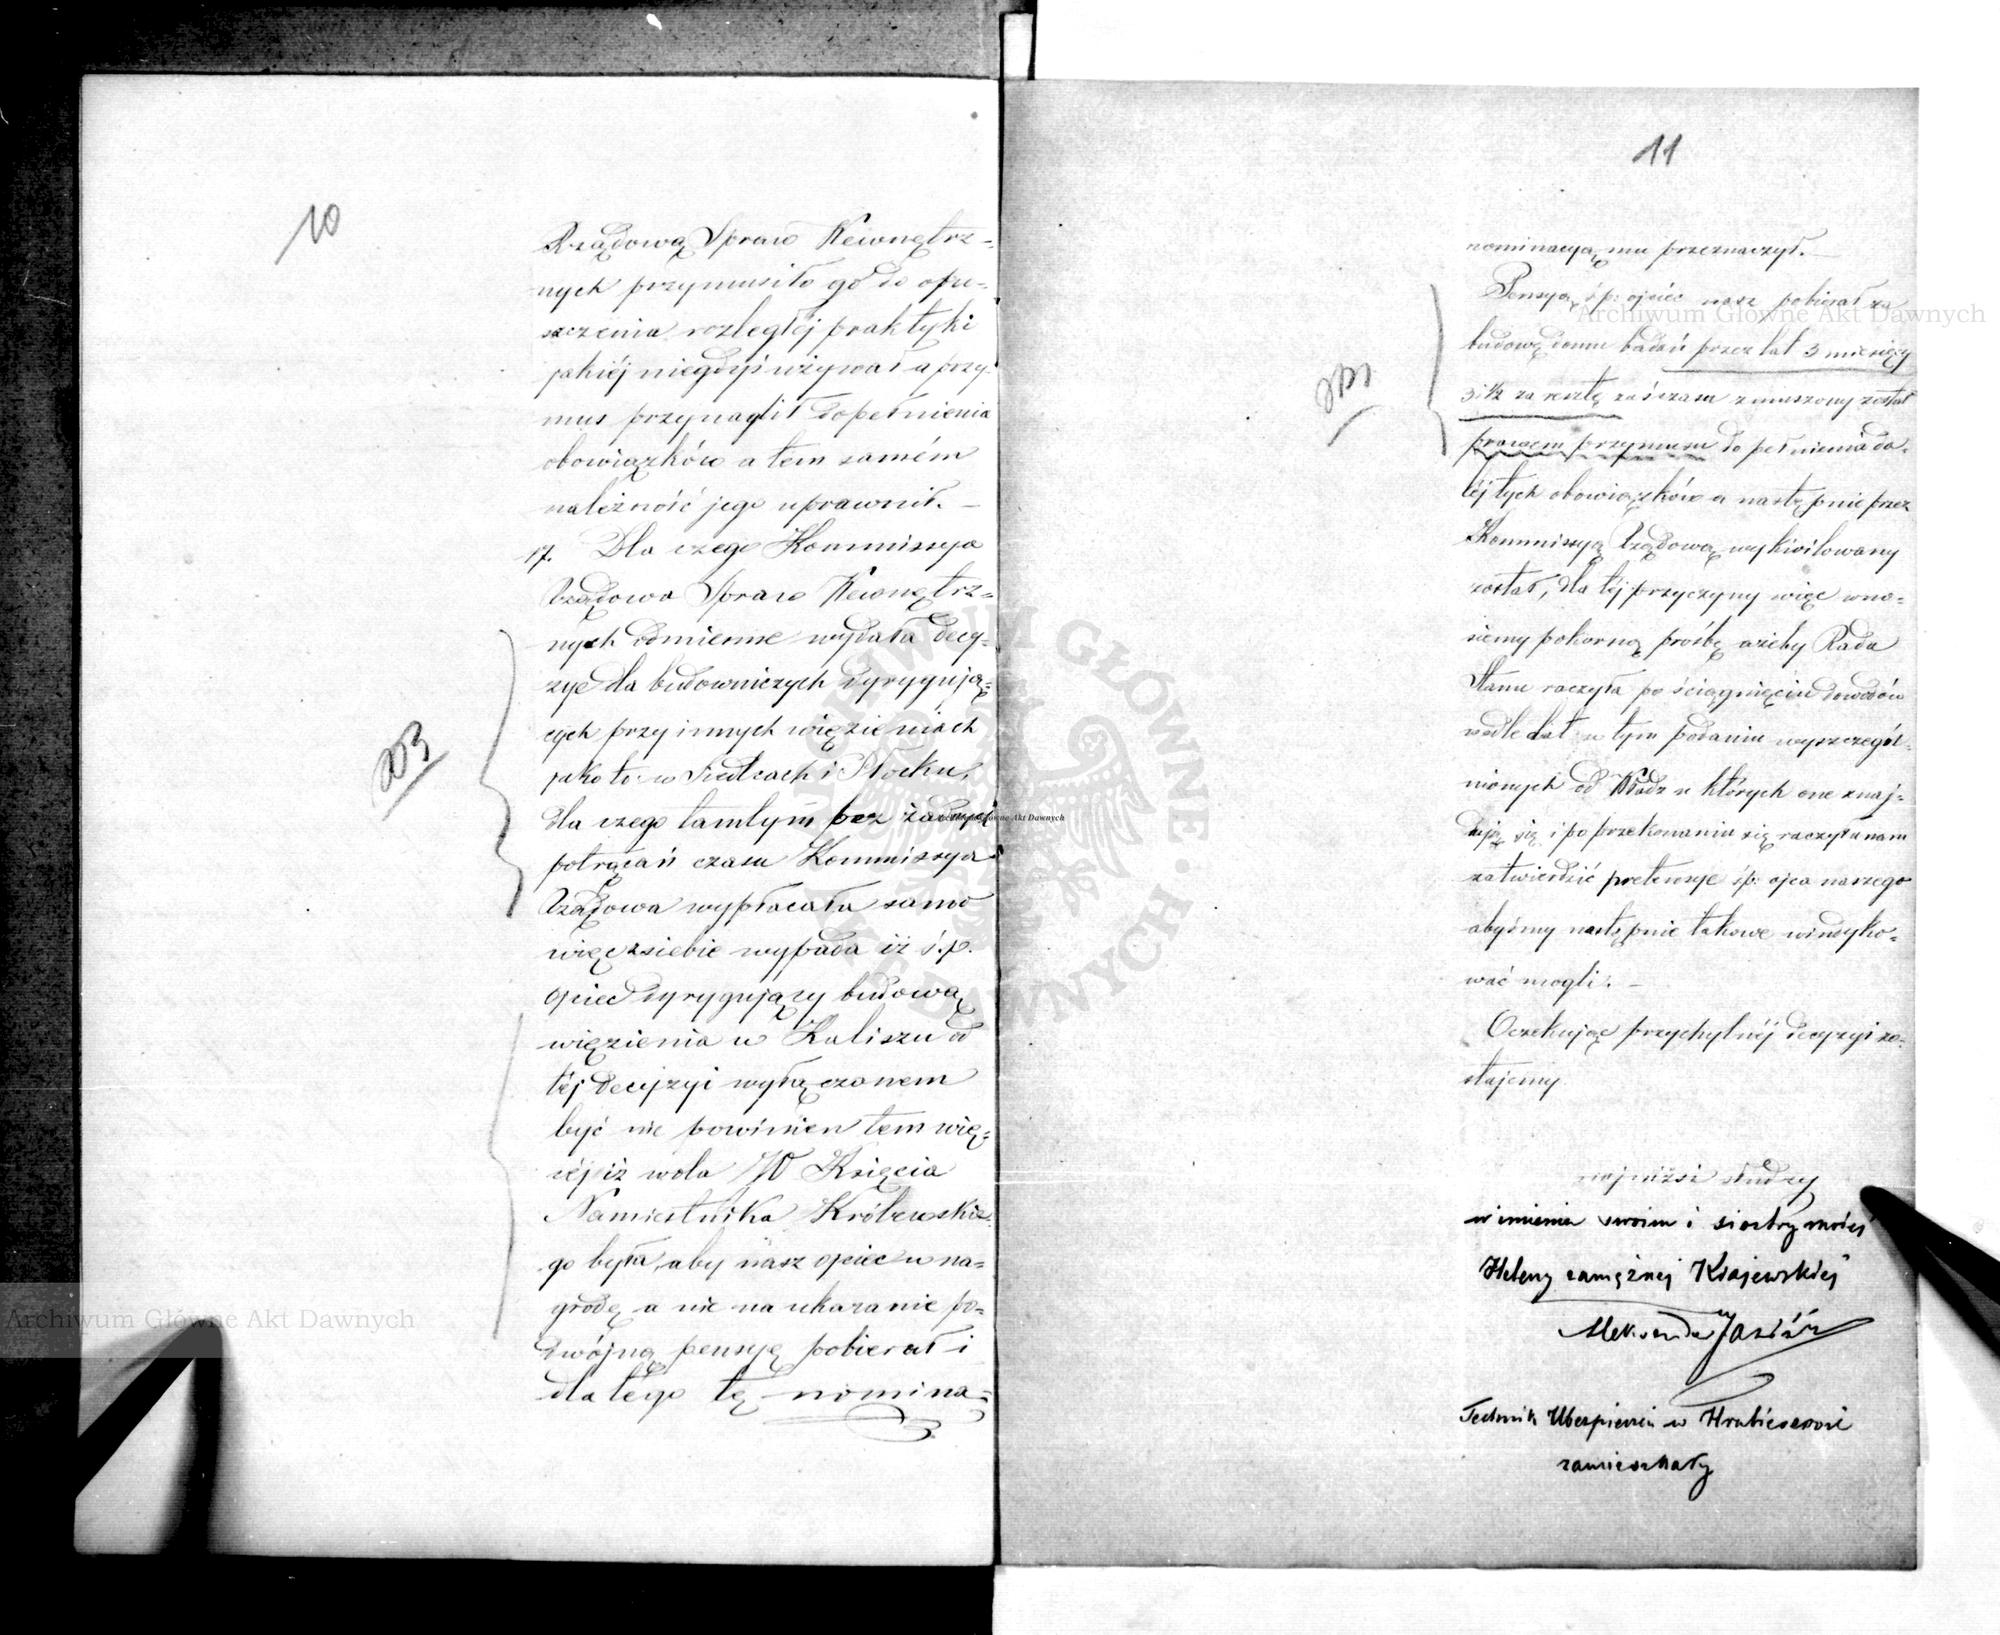 10
Rządową Spraw Wewnętrz-
nych przymusiło go do opu-
szczenia rozległéj praktyki
jakiéj niegdyś używał a przy-
mus przynaglił dopełnienia
obowiązków a tem samém
należność jego uprawnił. —
17. Dla czego Kommissya
Rządowa Spraw Wewnętrz-
nych odmienne wydała decy-
zye dla budowniczych dyrygują-
cych przy innych więzieniach
jako to: w Siedlcach i Płocku,
dla czego tamtym bez żadnych
potrąceń czasu Kommissya
Rządowa wypłacała samo
więc z siebie wypada iż ś.p.
ojciec dyrygujący budową
więzienia w Kaliszu od
téj decyzyi wyłączonem
być nie powinien tem wię-
céj iż wola JO Księcia
Namiestnika Królewskie-
go była, aby nasz ojciec w na-
grodę a nie na ukaranie po-
dwójną pensyę pobierał i
dla tego tę nomina-
11
nominacyą mu przeznaczył. —
Pensyą ś.p: ojciec nasz pobierał za
budowę domu badań przez lat 3 miesięcy
3 1/2 za resztę zaś czasu zmuszony został
prawem przymusu do pełnienia da-
léj tych obowiązków a następnie przez
Kommissyą Rządową wykwitowany
został, dla téj przyczyny więc wno-
siemy pokorną prośbę ażeby Rada
Stanu raczyła po ściągnięciu dowodów
wedle dat w tym podaniu wyszczegól-
nionych od Władz u których one znaj-
dują się i po przekonaniu się raczyła nam
zatwierdzić pretensye ś.p: ojca naszego
abyśmy następnie takowe windyko-
wać mogli. —
Oczekując przychylnéj decyzyi zo-
stajemy
najniżsi słudzy
w imieniu swoim i siostry mojéj
Heleny zamężnej Krajewskiéj
Aleksander
Technik Ubezpieczeń w Hrubieszowie
zamieszkały
Archiwum Główne Akt Dawnych
Archiwum Główne Akt Dawnych
Archiwum Główne Akt Dawnych
ARCHIWUM GŁÓWNE AKT DAWNYCH